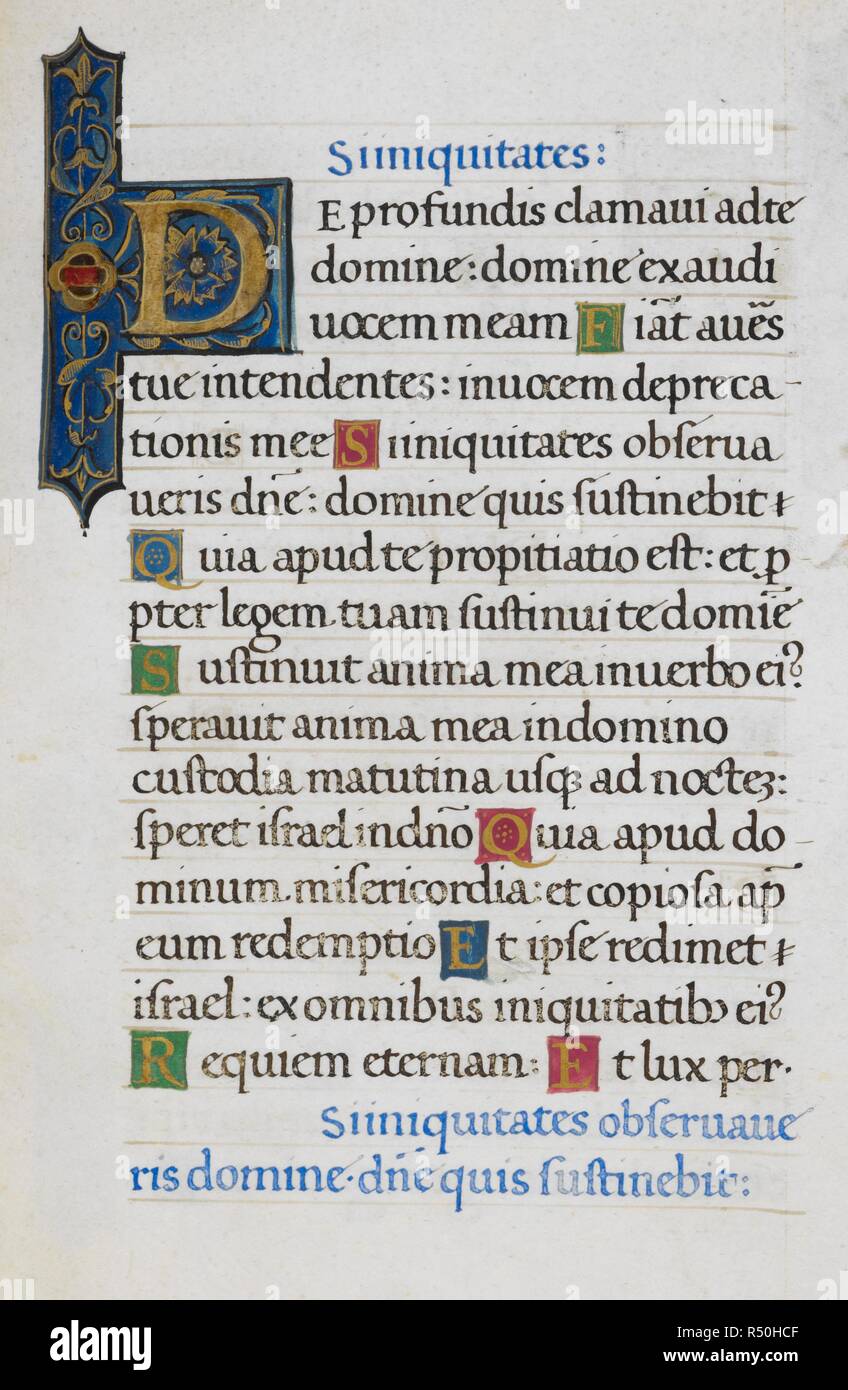 Si iniquitates:
DE profundis clamaui ad te
domine: domine exaudi
uocem meam Fiāt auēs
tue intendentes: in uocem depreca-
tionis mee Si iniquitates obſerua
ueris dn̄e: domine quis ſuſtinebit
Quia apud te propitiatio eſt: et ꝓ
pter legem tuam ſuſtinui te domīe
Suſtinuit anima mea in uerbo eiꝰ
ſperauit anima mea in domino
A custodia matutina uſqꝫ ad nocteꝫ:
ſperet iſrael in dn̄o Quia apud do-
minum miſericordia: et copioſa ap̄
eum redemptio Et ipſe redimet
iſrael: ex omnibus iniquitatibꝰ eiꝰ
Requiem eternam: Et lux per.
Si iniquitates obſeruaue
ris domine. dn̄e quis ſuſtinebit:
alamy
Image ID: R50HCF
www.alamy.com